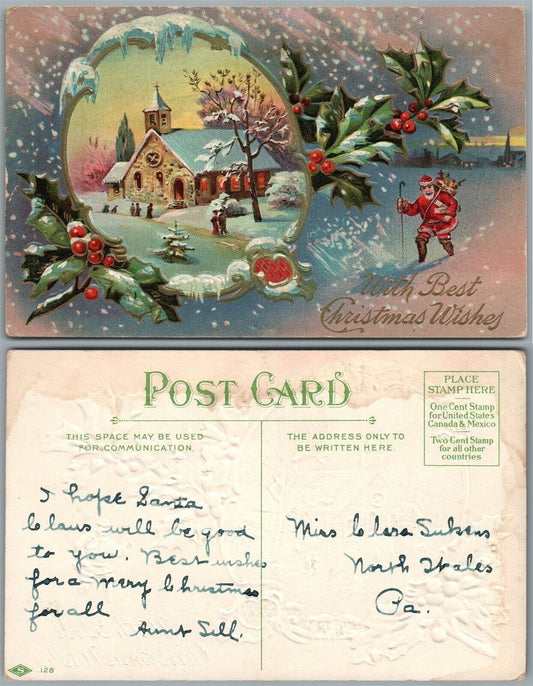 With Best
Christmas Wishes
POST CARD
THIS SPACE MAY BE USED
FOR COMMUNICATION.
THE ADDRESS ONLY TO
BE WRITTEN HERE.
PLACE
STAMP HERE
One Cent Stamp
for United States
Canada & Mexico
Two Cent Stamp
for all other
countries
I hope Santa
Claus will be good
to you. Best wishes
for a Merry Christmas
for all
Aunt Sell.
Miss Clara
North Wales
Pa.
S
128